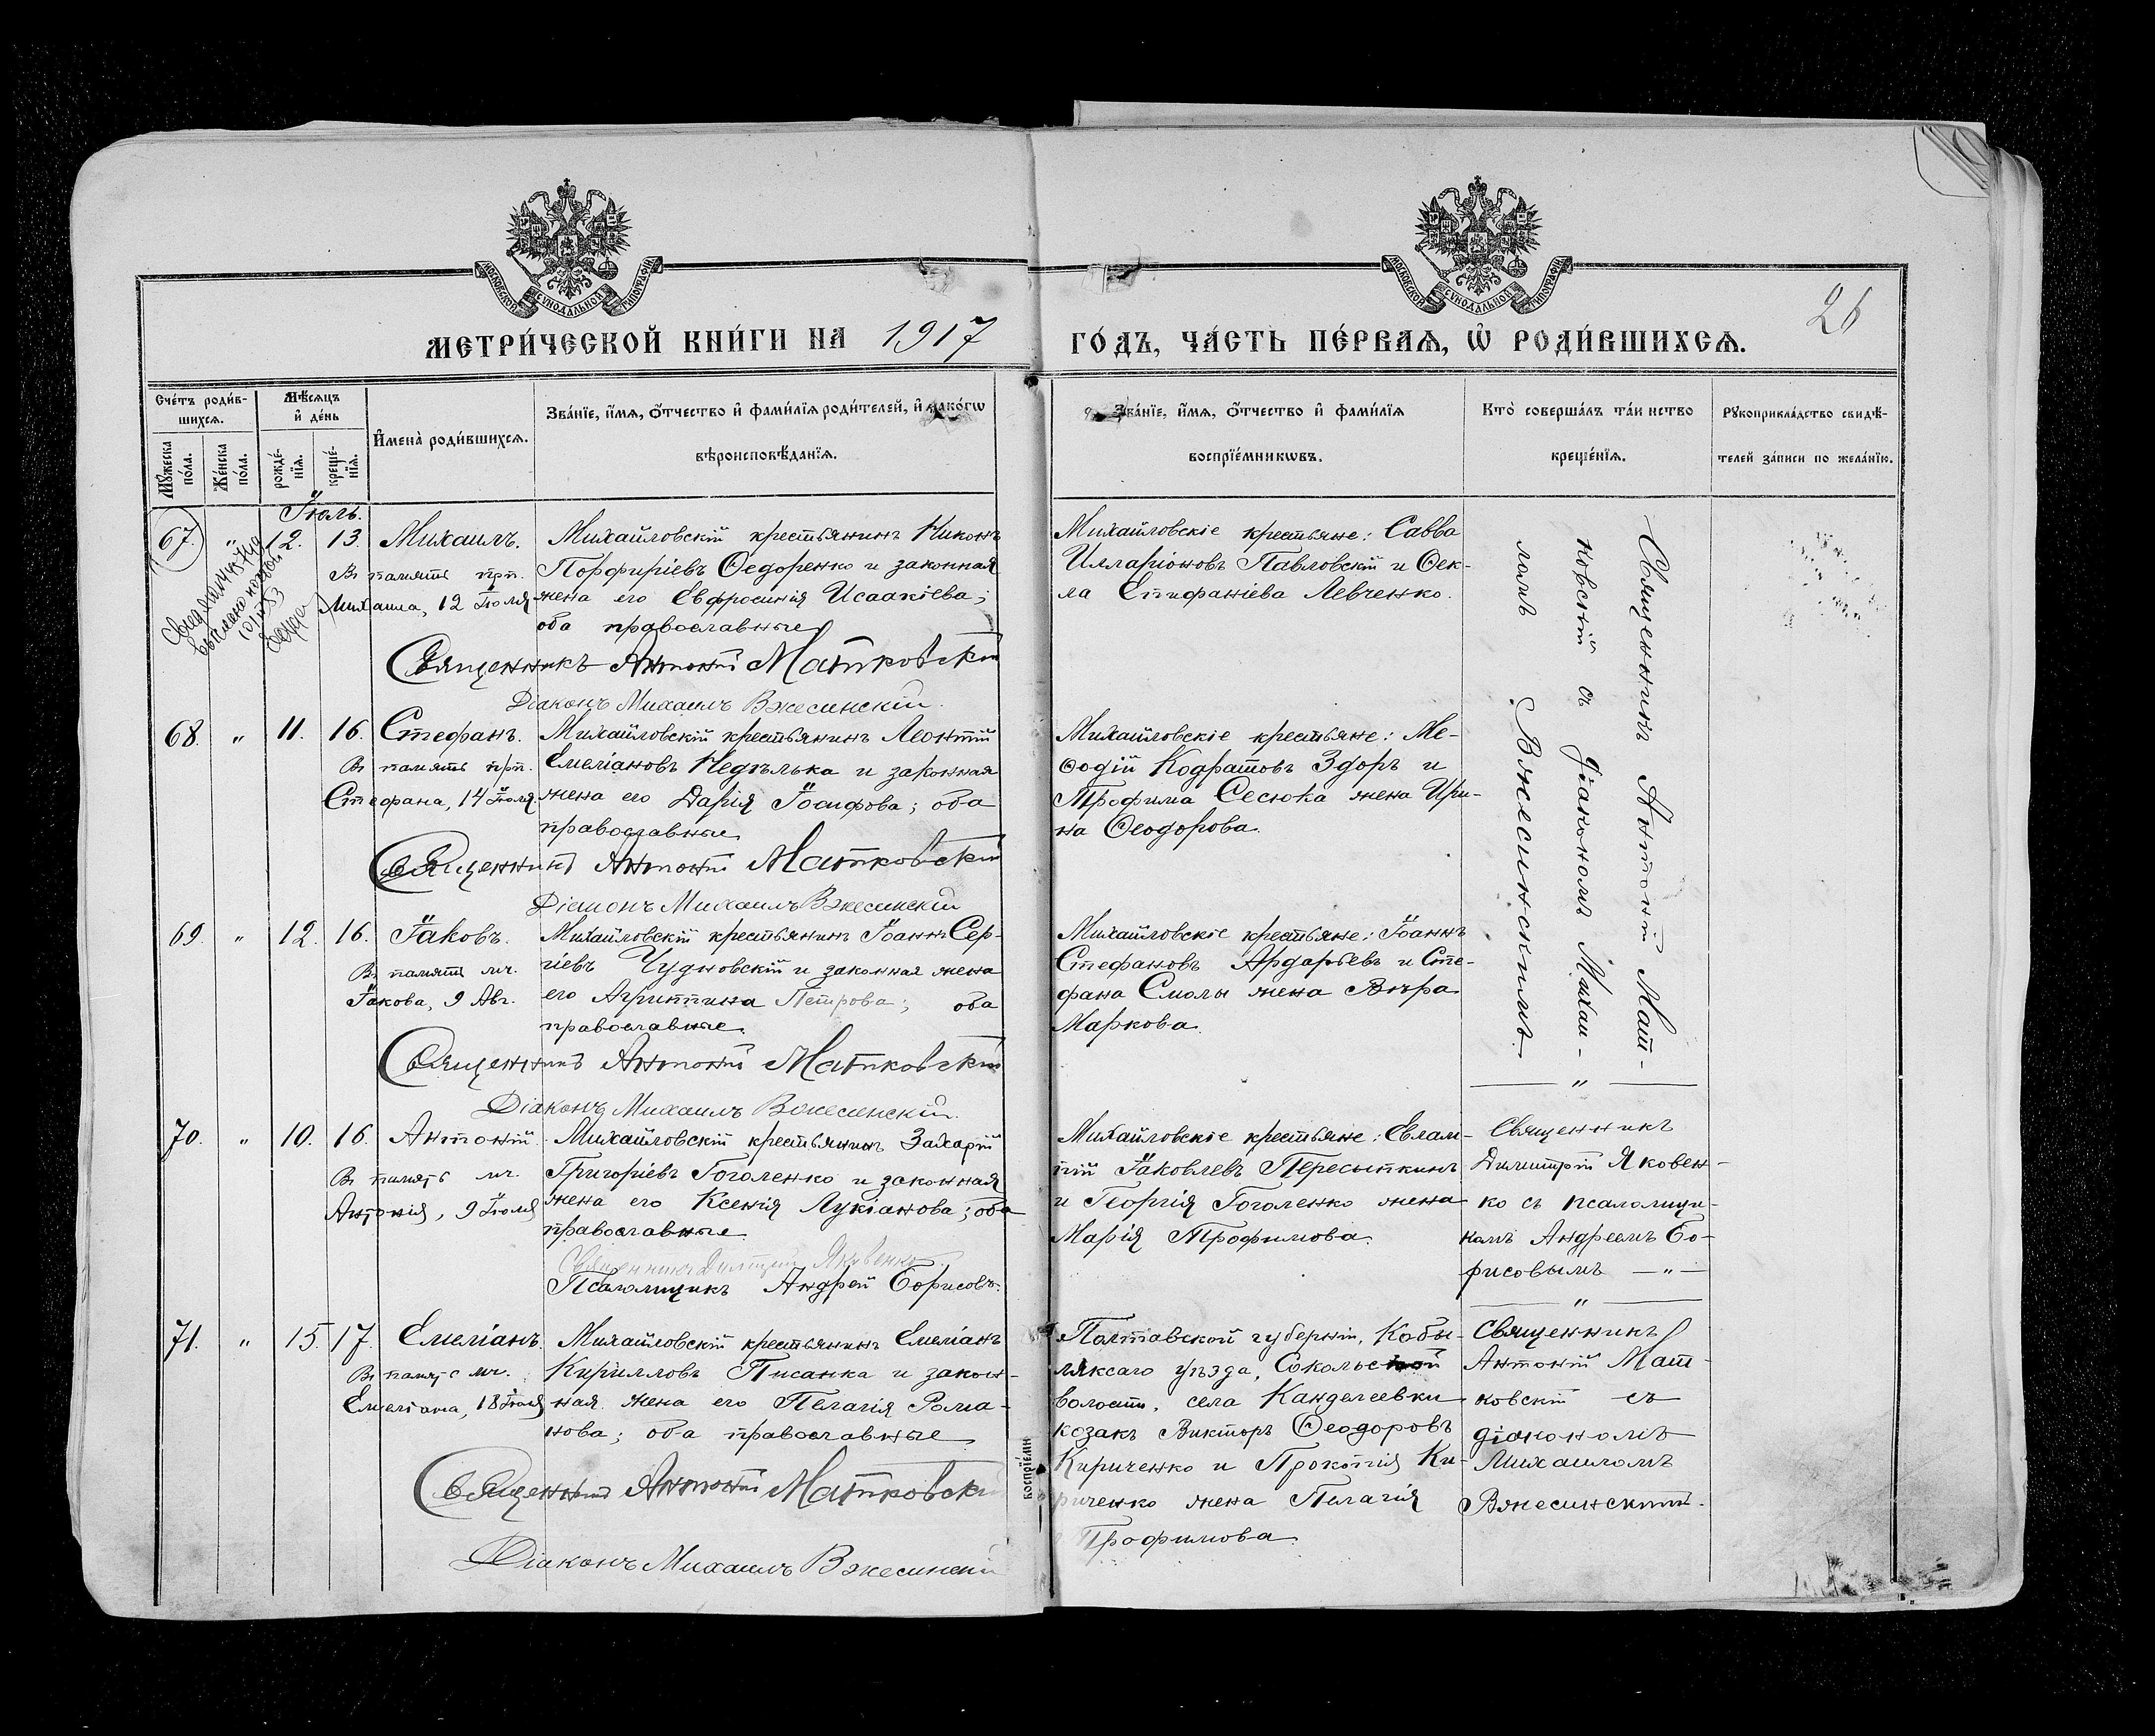 МОСКОВСКОЙ СѴНОДАЛЬНОЙ ТИПОГРАФІИ
МОСКОВСКОЙ СѴНОДАЛЬНОЙ ТИПОГРАФІИ
26
МЕТРИ́ЧЕСКОЙ КНИ́ГИ НА 1917 ГО́ДЪ, ЧА́СТЬ ПЕ́РВАЯ, Ѡ҆ РОДИ́ВШИХСЯ.
Сче́тъ роди́вшихся.
Мѹ́жеска по́ла.
Же́нска по́ла.
Мѣ́сяцъ и҆ де́нь
рожде́нїя.
креще́нїя.
И҆мена̀ роди́вшихся.
Зва́нїе, и҆́мя, ѻ҆́тчество и҆ фами́лїя роди́телей, и҆ како́гѡ
вѣроисповѣ́данїя.
Зва́нїе, и҆́мя, ѻ҆́тчество и҆ фами́лїя
воспрїе́мникѡвъ.
Кто̀ соверша́лъ та́инство
креще́нїя.
Рѹкоприкла́дство свидѣ́-
телей за́писи по жела́нїю.
Іюль.
67. " 12. 13. Михаилъ.
Въ память прп.
Михаила, 12 Іюля
Михайловскій крестьянинъ Никонъ
Порфиріевъ Ѳедоренко и законная
жена его Евфросинія Исаакіева;
оба православные
Священникъ Антоній Матковскій
Діаконъ Михаилъ Вжесинскій.
Михайловскіе крестьяне: Савва
Илларіоновъ Павловскій и Ѳек-
ла Епифаніева Левченко.
Священникъ Антоній Мат-
ковскій съ діакономъ Михаи-
ломъ Вжесинскимъ.
68. " 11. 16. Стефанъ.
Въ память прп.
Стефана, 14 Іюля.
Михайловскій крестьянинъ Леонтій
Емеліановъ Недѣлька и законная
жена его Дарія Іосифова; оба
православные
Священникъ Антоній Матковскій
Діаконъ Михаилъ Вжесинскій
Михайловскіе крестьяне: Ме-
ѳодій Кодратовъ Здоръ и
Трофима Сесюка жена Ири-
на Ѳеодорова.
69. " 12. 16. Іаковъ.
Въ память мч.
Іакова, 9 Авг.
Михайловскій крестьянинъ Іоаннъ Сер-
гіевъ Чудновскій и законная жена
его Агриппина Петрова; оба
православные.
Священникъ Антоній Матковскій
Діаконъ Михаилъ Вжесинскій.
Михайловскіе крестьяне: Іоаннъ
Стефановъ Ардарьевъ и Сте-
фана Смолы жена Вѣра
Маркова.
70. " 10. 16. Антоній
Въ память мч.
Антонія, 9 Іюля
Михайловскій крестьянинъ Захарій
Григоріевъ Гоголенко и законная
жена его Ксенія Лукіанова; оба
православные
Священникъ Димитрій Яковенко
Псаломщикъ Андрей Борисовъ.
Михайловскіе крестьяне: Евлам-
пій Іаковлевъ Пересыпкинъ
и Георгія Гоголенко жена
Марія Трофимова.
Священникъ
Димитрій Яковен-
ко съ псаломщи-
комъ Андреемъ Бо-
рисовымъ — " —
71. " 15. 17. Емеліанъ.
Въ память мч.
Емеліана, 18 Іюля
Михайловскій крестьянинъ Емеліанъ
Кирилловъ Писанка и закон-
ная жена его Пелагія Рома-
нова; оба православные
Священникъ Антоній Матковскій
Діаконъ Михаилъ Вжесинскій
Полтавской губерніи, Кобы-
ляксаго уѣзда, Сокольской
волости, села Канделеевки
козакъ Викторъ Ѳеодоровъ
Кириченко и Прокопія Ки-
риченко жена Пелагія
Трофимова
Священникъ
Антоній Мат-
ковскій съ
діакономъ
Михаиломъ
Вжесинскимъ.